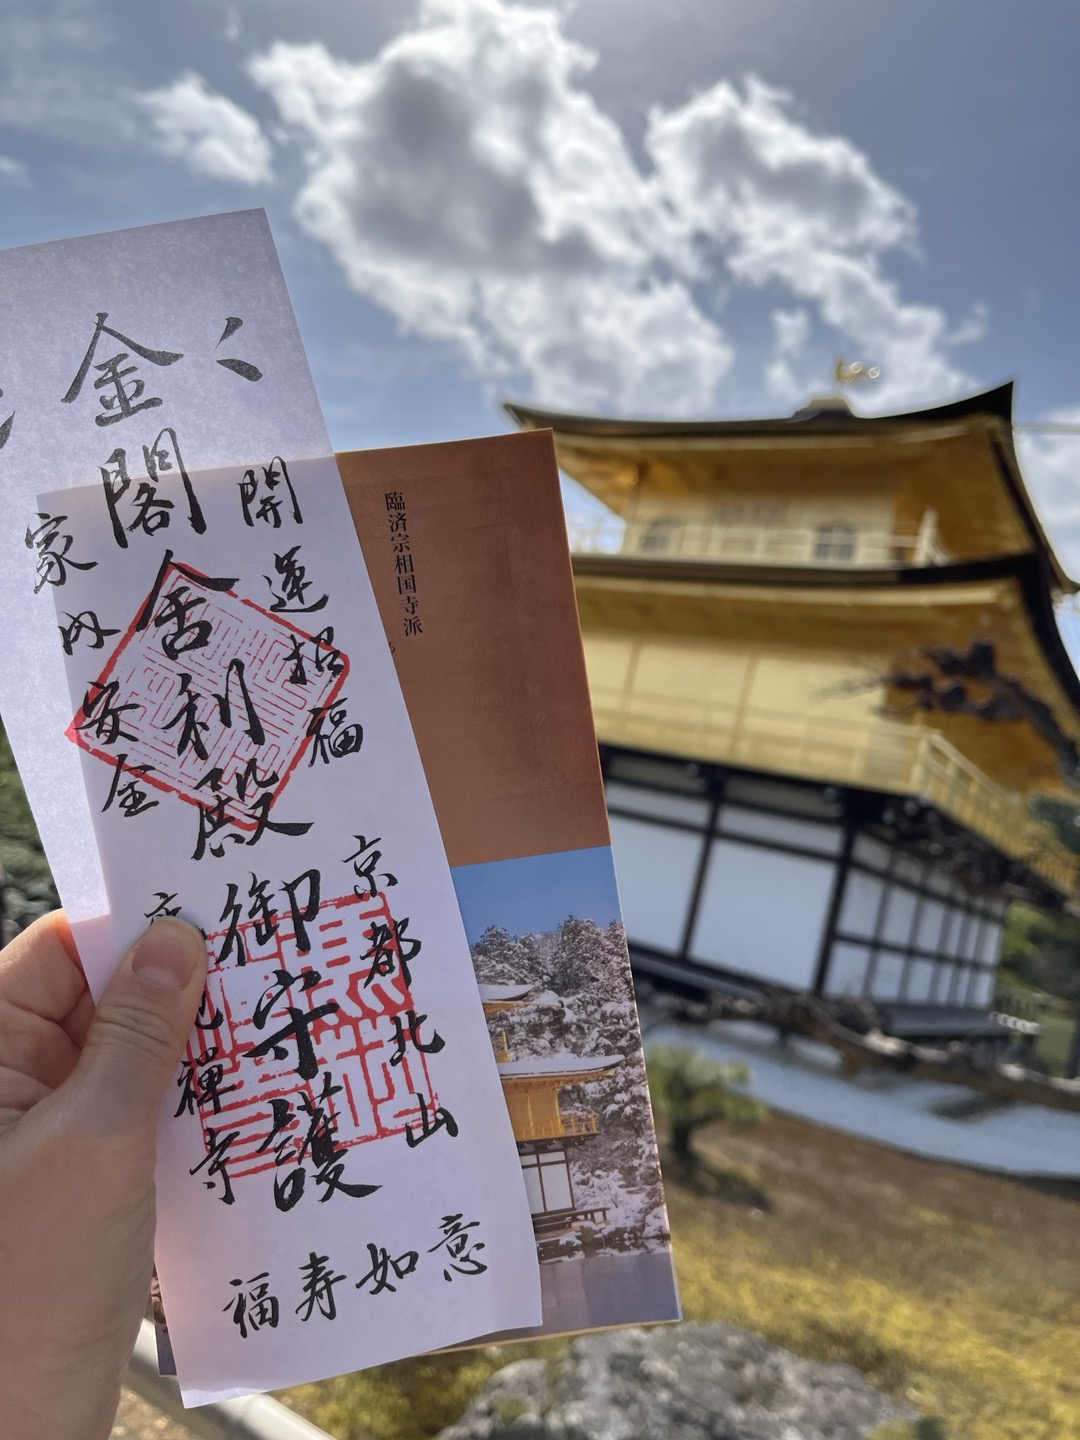 開運招福
金閣舎利殿御守護
家内安全
京都北山
禅寺
福寿如意
臨済宗相国寺派